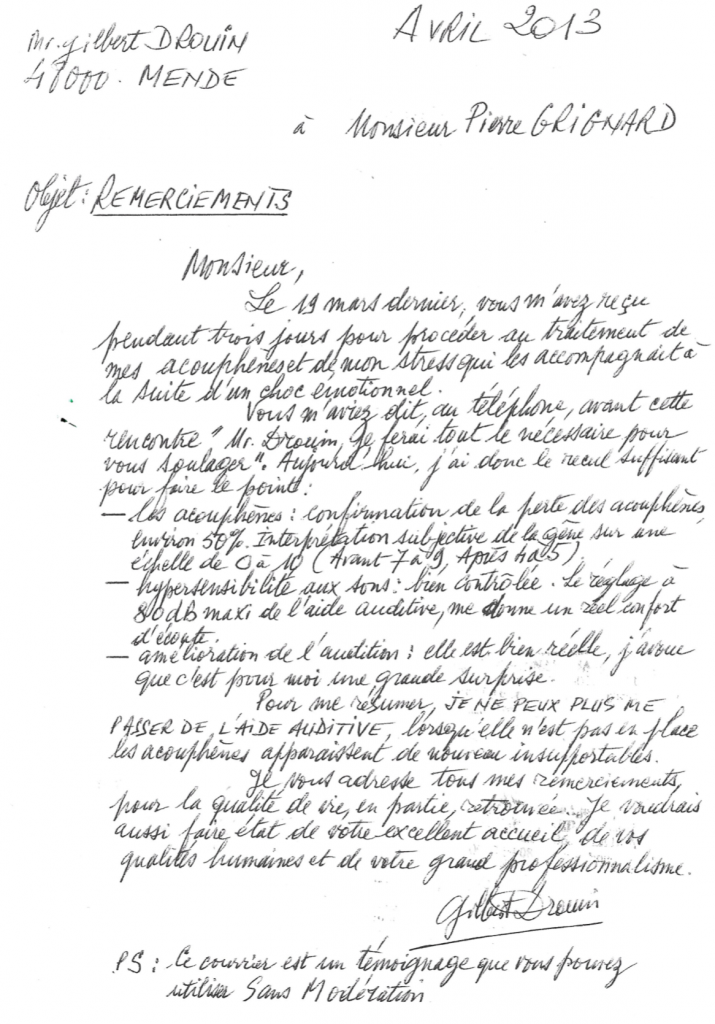 Mr. Gilbert DROUIN
48000. MENDE
AVRIL 2013
à Monsieur Pierre GRIGNARD
Objet: REMERCIEMENTS
Monsieur,
Le 19 mars dernier, vous m'avez reçu
pendant trois jours pour procéder au traitement de
mes acouphènes et de mon stress qui les accompagnait à
la suite d'un choc émotionnel.
Vous m'aviez dit, au téléphone, avant cette
rencontre "Mr. Drouin, je ferai tout le nécessaire pour
vous soulager". Aujourd'hui, j'ai donc le recul suffisant
pour faire le point:
— les acouphènes: confirmation de la perte des acouphènes,
environ 50%. Interprétation subjective de la gêne sur une
échelle de 0 à 10 (Avant 7 à 9, Après 4 à 5)
— hypersensibilité aux sons: bien contrôlée. Le réglage à
80 dB maxi de l'aide auditive, me donne un réel confort
d'écoute.
— amélioration de l'audition: elle est bien réelle, j'avoue
que c'est pour moi une grande surprise.
Pour me résumer, JE NE PEUX PLUS ME
PASSER DE L'AIDE AUDITIVE, lorsqu'elle n'est pas en place
les acouphènes apparaissent de nouveau insupportables.
Je vous adresse tous mes remerciements,
pour la qualité de vie, en partie, retrouvée. Je voudrais
aussi faire état de votre excellent accueil, de vos
qualités humaines et de votre grand professionnalisme.
Gilbert Drouin
PS: Ce courrier est un témoignage que vous pouvez
utiliser Sans Modération